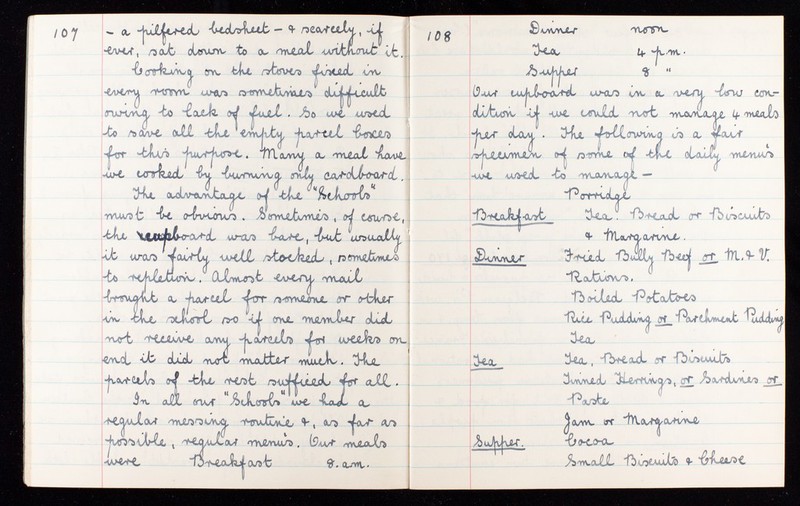 107
- a pilfered bedsheet - & scarcely, if
ever, sat down to a meal without it.
Cooking on the stoves fixed in
every room was sometimes difficult
owing to lack of fuel. So we used
to save all the empty parcel boxes
for this purpose. Many a meal have
we cooked by burning only cardboard.
The advantage of the "Schools"
must be obvious. Sometimes, of course,
the cupboard was bare, but usually
it was fairly well stocked, sometimes
to repletion. Almost every mail
brought a parcel for someone or other
in the school so if one member did
not receive any parcels for weeks on
end it did not matter much. The
parcels of the rest sufficed for all.
In all our "Schools" we had a
regular messing routine &, as far as
possible, regular menus. Our meals
were Breakfast 8. a.m.
108
Dinner noon
Tea 4 p.m.
Supper 8 "
Our cupboard was in a very low con-
dition if we could not manage 4 meals
per day. The following is a fair
specimen of some of the daily menu's
we used to manage -
Porridge
Breakfast Tea. Bread or Biscuits
& Margarine.
Dinner Fried Bully Beef or M. & V.
Rations.
Boiled Potatoes
Rice Pudding or Parchment Pudding
Tea
Tea Tea, Bread or Biscuits
Tinned Herrings, or Sardines or
Paste
Jam or Margarine
Supper. Cocoa
Small Biscuits & Cheese